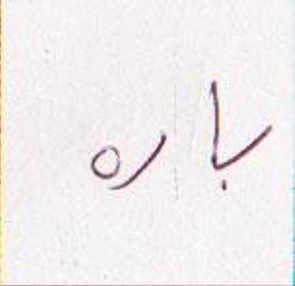 باره